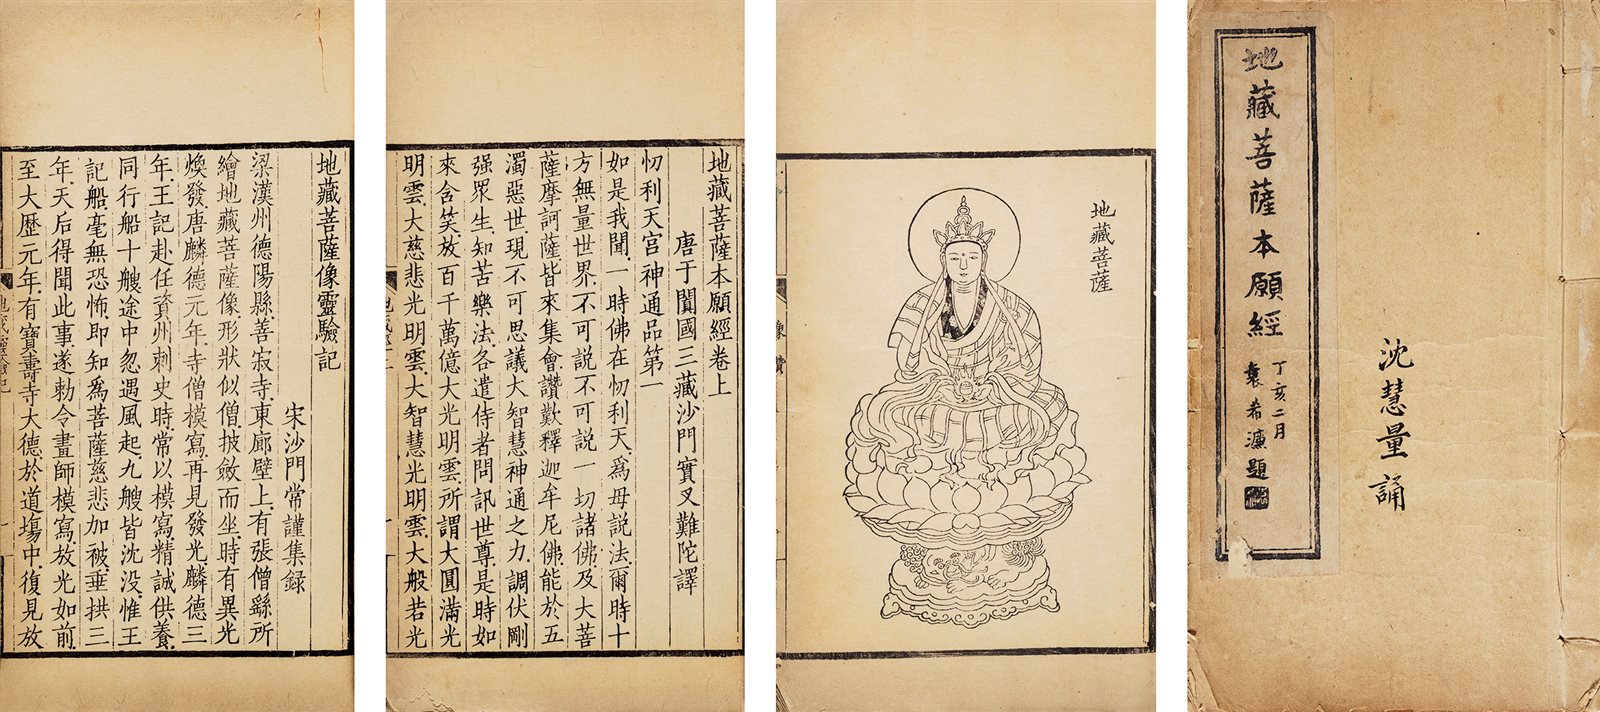 地藏菩薩本願經
丁亥二月
袁希濂題
沈慧量誦
地藏菩薩
地藏菩薩本願經卷上
唐于闐國三藏沙門實叉難陀譯
忉利天宮神通品第一
如是我聞.一時佛在忉利天.爲母說法.爾時十
方無量世界.不可說不可說一切諸佛.及大菩
薩摩訶薩.皆來集會.讚歎釋迦牟尼佛.能於五
濁惡世.現不可思議大智慧神通之力.調伏剛
强眾生.知苦樂法.各遣侍者.問訊世尊.是時如
來含笑.放百千萬億大光明雲.所謂大圓滿光
明雲.大慈悲光明雲.大智慧光明雲.大般若光
地藏菩薩像靈驗記
宋沙門常謹集録
梁漢州德陽縣.善寂寺.東廊壁上.有張僧繇所
繪地藏菩薩像.形狀似僧.披斂而坐.時有異光
煥發.唐麟德元年.寺僧模寫.再見發光.麟德三
年.王記赴任資州刺史時.常以模寫.精誠供養.
同行船十艘.途中忽遇風起.九艘皆沈没.惟王
記船.毫無恐怖.即知爲菩薩慈悲加被.垂拱三
年.天后得聞此事.遂勅令畫師模寫.放光如前.
至大歷元年.有寶壽寺大德.於道場中.復見放